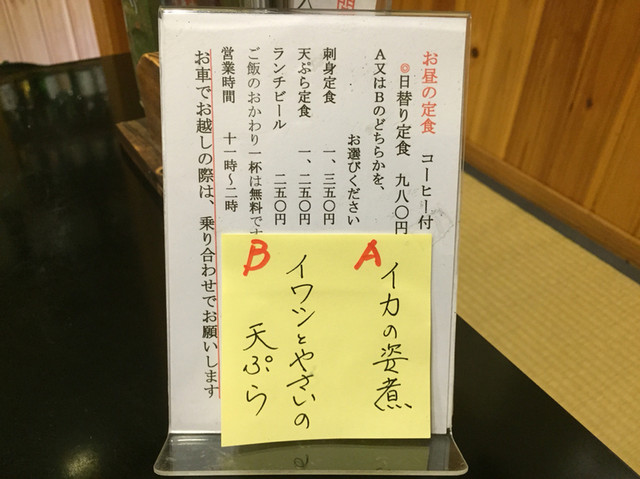 お昼の定食 コーヒー付
◎日替り定食 九八〇円
A又はBのどちらかを、
お選びください
刺身定食 一、三五〇円
天ぷら定食 一、二五〇円
ランチビール 二五〇円
ご飯のおかわり一杯は無料です
営業時間 十一時～二時
お車でお越しの際は、乗り合わせでお願いします
A イカの姿煮
B イワシとやさいの
天ぷら